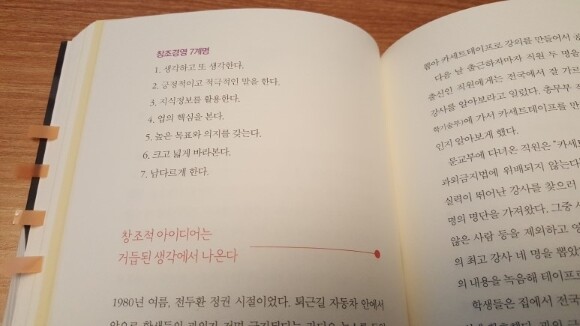 창조경영 7계명
1. 생각하고 또 생각한다.
2. 긍정적이고 적극적인 말을 한다.
3. 지식정보를 활용한다.
4. 업의 핵심을 본다.
5. 높은 목표와 의지를 갖는다.
6. 크고 넓게 바라본다.
7. 남다르게 한다.
창조적 아이디어는
거듭된 생각에서 나온다
1980년 여름, 전두환 정권 시절이었다. 퇴근길 자동차 안에서
뽑아 카세트테이프로 강의를 만들어서
다음 날 출근하자마자 직원 두 명을
출신인 직원에게는 전국에서 잘 가르
강사를 알아보라고 일렀다. 총무부
가서 카세트테이프를 만
인지 알아보게 했다.
문교부에 다녀온 직원은 “카세
과외금지법에 위배되지 않는다
실력이 뛰어난 강사를 찾으러
명의 명단을 가져왔다. 그중
않은 사람 등을 제외하고 영
의 최고 강사 네 명을 뽑았
의 내용을 녹음해 테이프
학생들은 집에서 전국